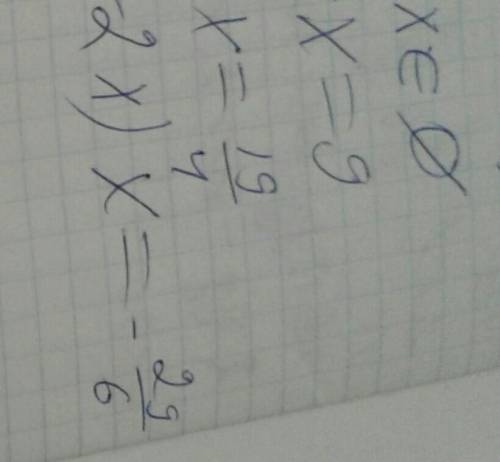 x ∈ ∅
x = 9
x = 19/4
2x) x = -29/6